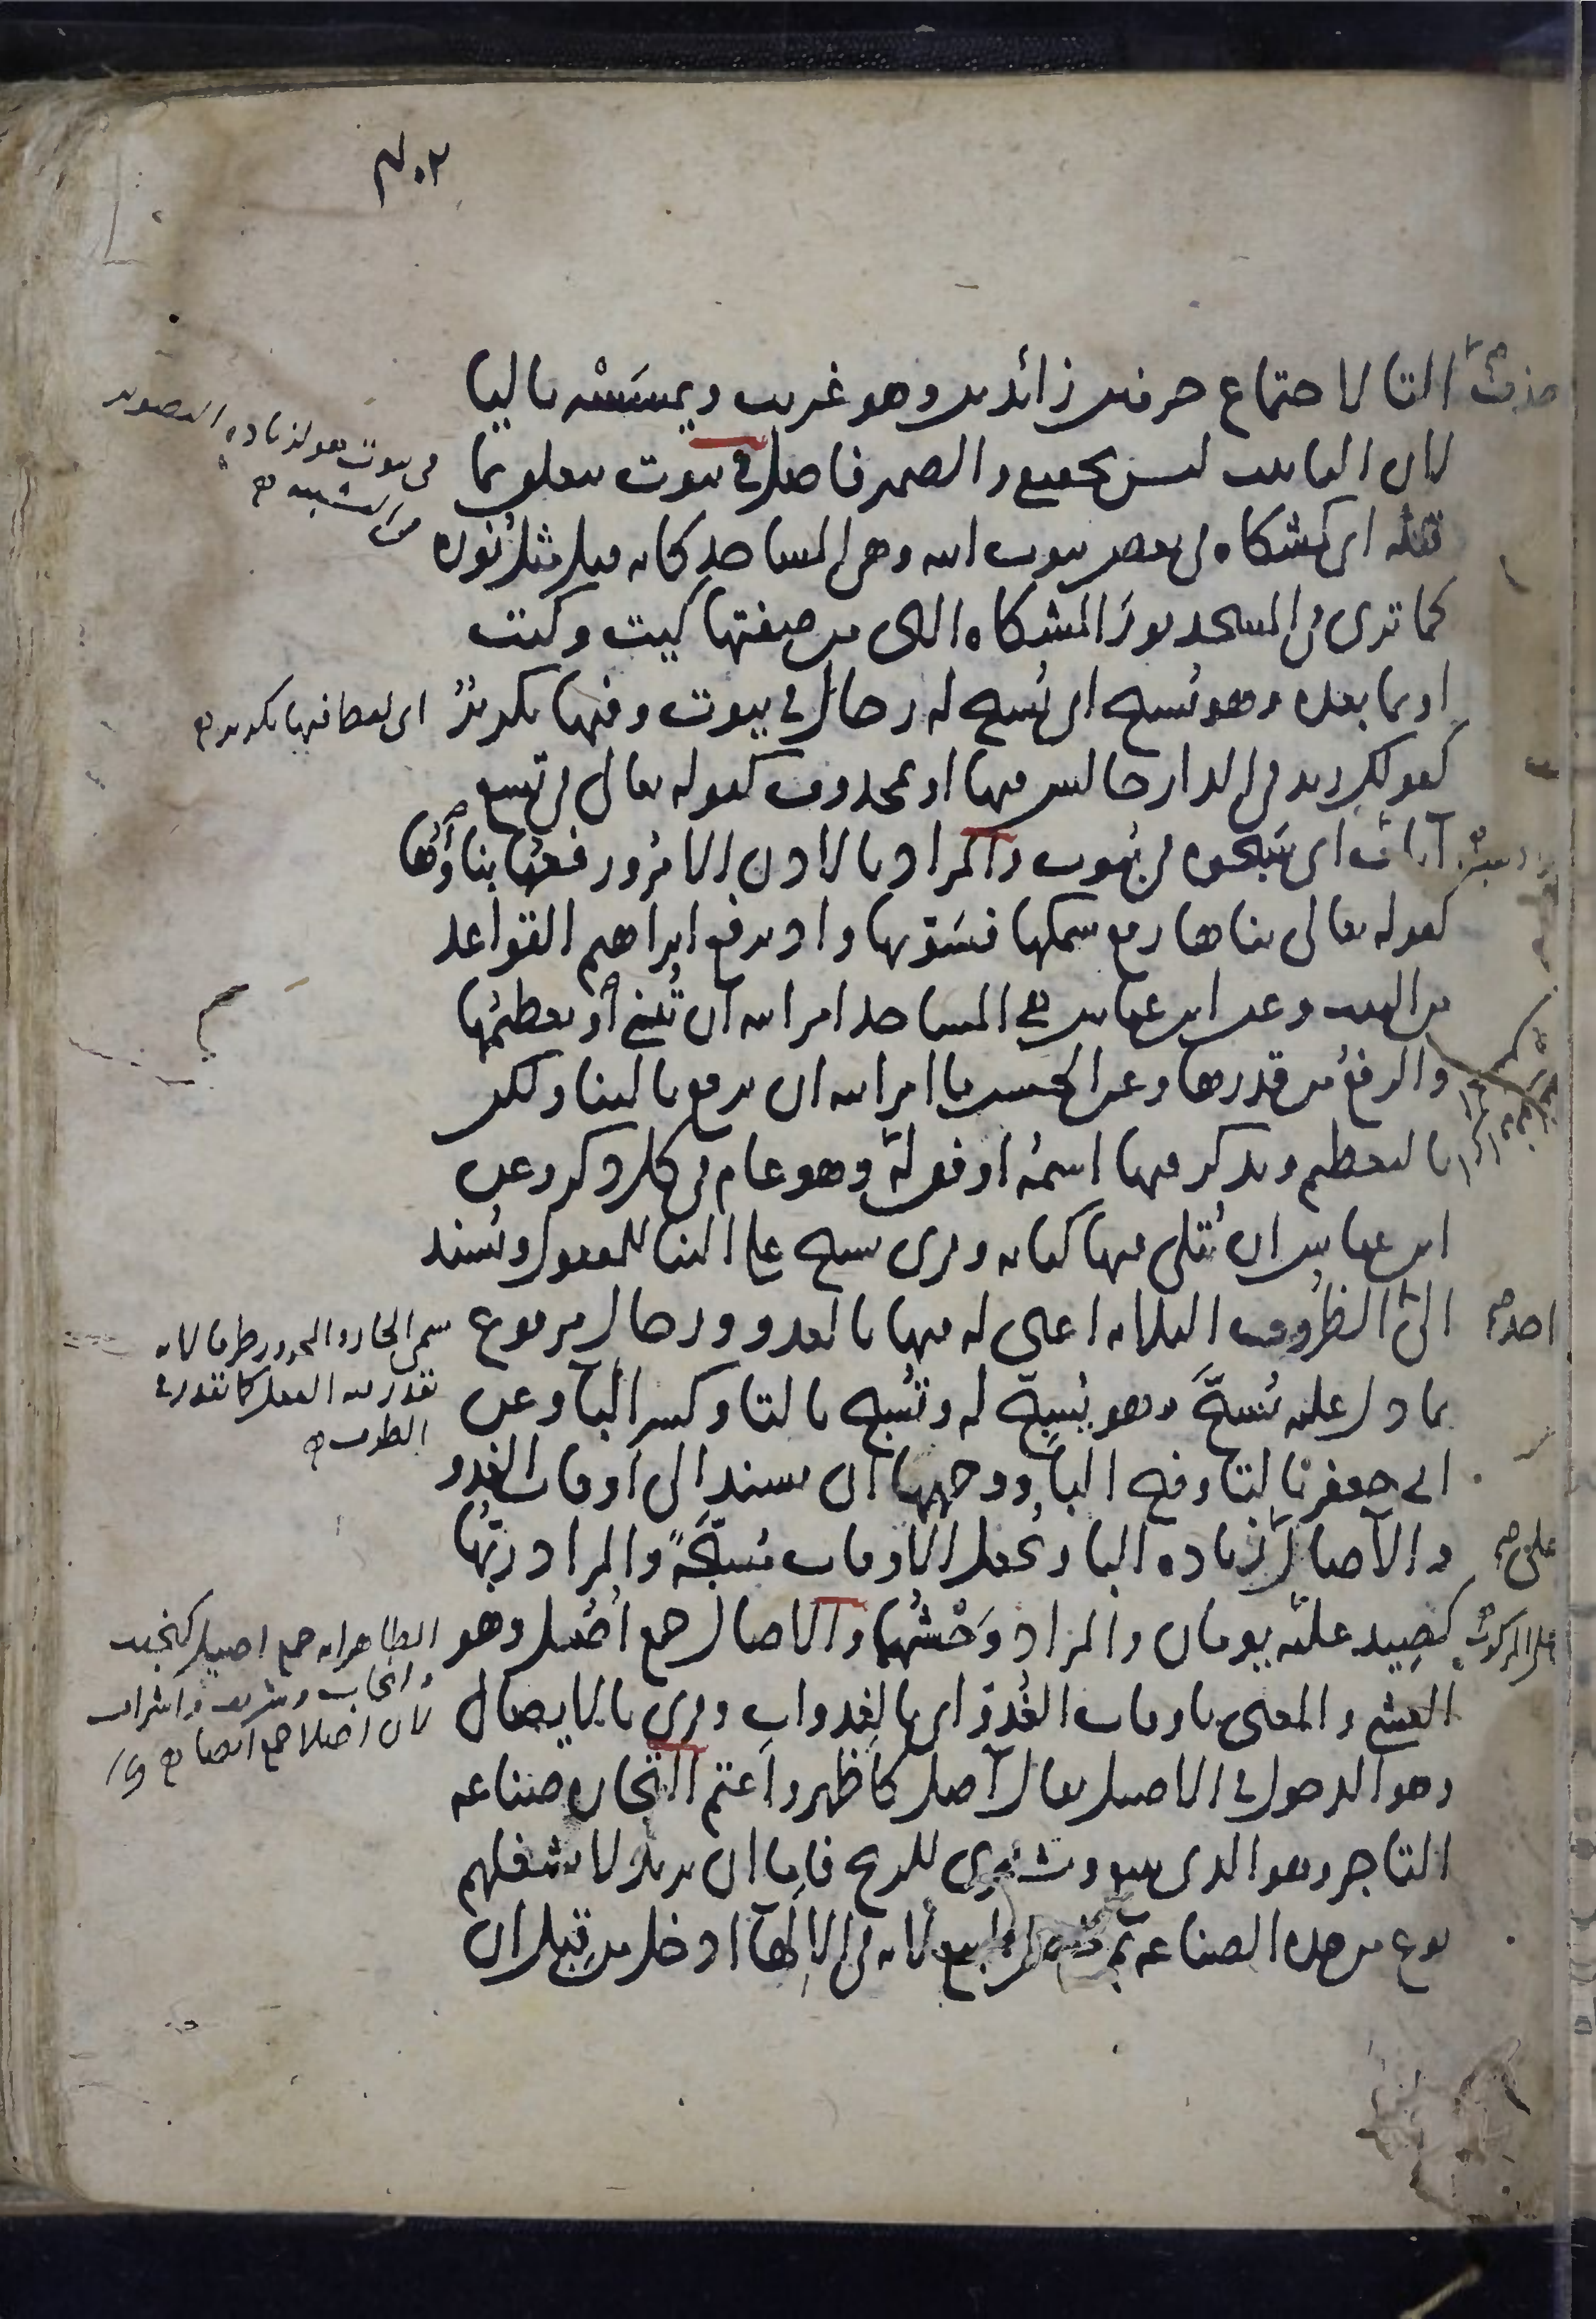 ٢٠٣
حذف التا لاجتماع حرفين زائدين وهو غريب ويمسَسْه باليا
لان التانيث ليس بحقيقي والضمير فاصل في بيوت يتعلق بما
قبله اى كمشكاة في بعض بيوت الله وهى المساجد كانه قيل مثل نُوره
كما ترى في المسجد نورَ المشكاة التى من صفتها كيت وكيت
او بما بعده وهو يُسبح اى يُسبح له رجال في بيوت وفيها تكريرٌ
كقولك زيد في الدار جالس فيها او بمحذوف كقوله تعالى في تسع
آيات اى سَبّحوه في بُيوت والمراد بالاذن الامرُ ورفعُها بناؤُها
كقوله تعالى بناها رفع سمكها فسَوّيها واذ يرفع ابراهيم القواعد
من البيت وعن ابن عباس هي المساجد امر الله ان تُبنى أو تعظيمُها
والرفعُ من قدرها وعن الحسن ما امر الله ان ترفع بالبنا ولكن
بالتعظيم ويذكر فيها اسمُه اوفق له وهو عام في كل ذكر وعن
ابن عباس ان يُتلى فيها كتابه وقرى يسبح على البنا للمفعول ويُسند
الى الظروف الثلاثة اعنى له فيها بالغدو ورجال مرفوع
بما دل عليه يُسبَّح وهو يُسبِّح له وتُسبِّح بالتا وكسر البآ وعن
ابى جعفر بالتا وفتح البآ ووجهها ان يسند الى اوقات الغدو
والآصال زيادة البا وتُجعل الاوقات مُسبَّحَةً والمراد ربُّها
كصِيد عليه يومان والمراد وَحْشُهما والاصال جمع أُصُل وهو
العشى والمعنى باوقات الغُدوّ اى بالغدوات وقرى بالايصال
وهو الدخول في الاصيل يقال آصل كاظهر واعتم التجارة صناعة
التاجر وهو الذى يبيع ويشترى للربح فاما ان يريد لا يشغلهم
نوع من هذه الصناعة ثم خص البيع لانه في الالهآ ادخل من قبل ان
في بيوت هو لزيادة التصوير
من التشبيه
اى لفظا فيها تكرير
سمى الجار والمجرور ظرفا لانه
تقدر فيه الفعل كما تقدر في
الظرف
الظاهر انه جمع اصيل كنجيب
وانجاب وشريف واشراف
لان اصلا جمع ايضا
احد
على